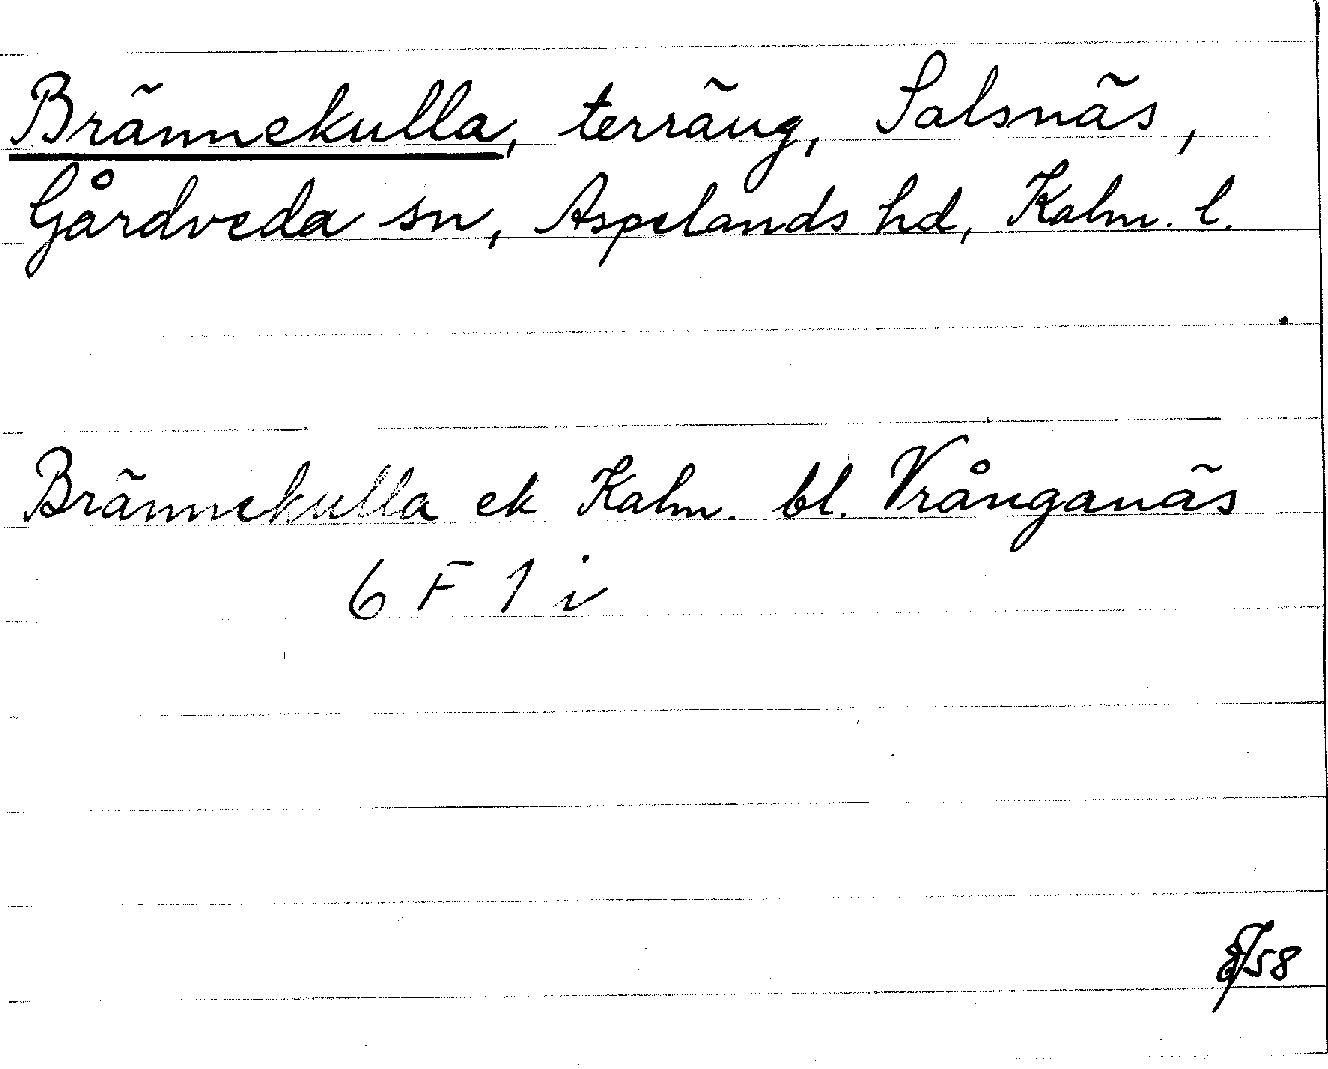 Brännekulla, terräng, Salsnäs,
Gårdveda sn, Aspelands hd, Kalm. l.
Brännekulla ek Kalm. bl. Vrånganäs
6 F 1 i
/58